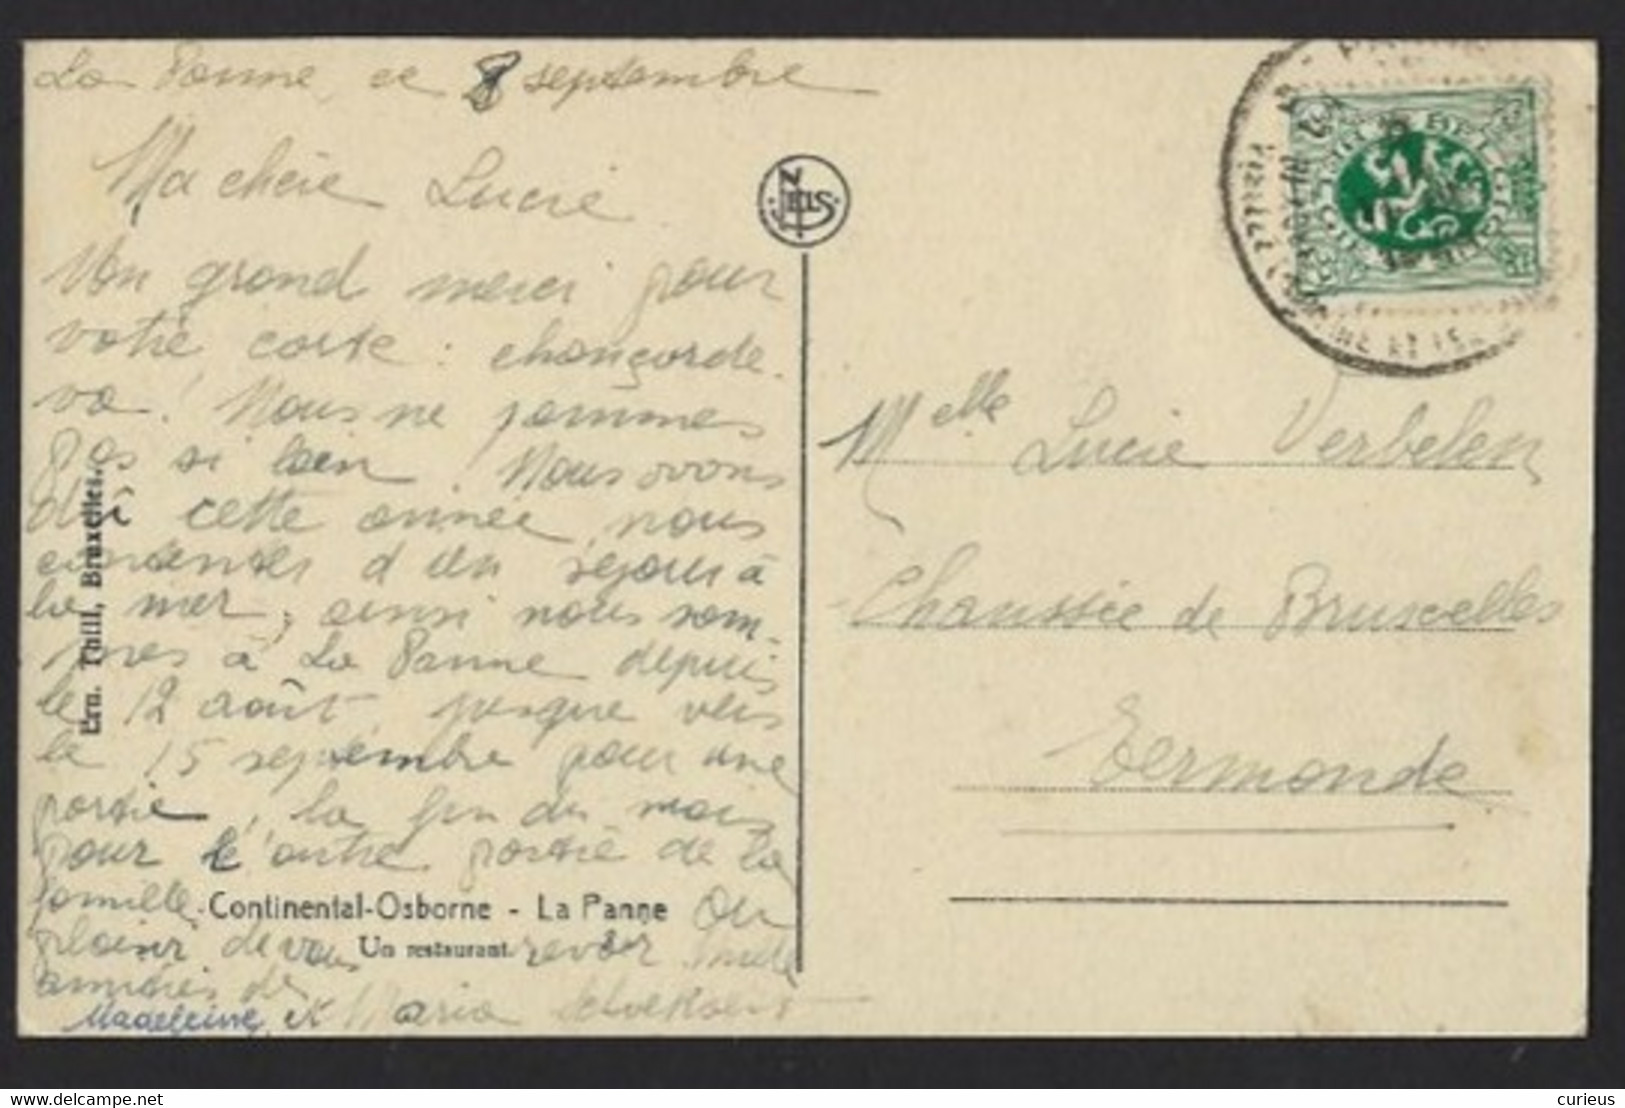 La Panne, ce 8 septembre
Ma chère Lucie
Un grand merci pour
votre carte :
va! Nous ne sommes
pas si loin. Nous avons
dû cette année nous
contenter d'un séjour à
la mer, ainsi nous som-
mes à La Panne depuis
le 12 août jusque vers
le 15 septembre pour une
partie, la fin du mois
pour l'autre partie de la
famille. Au
plaisir de vous revoir
amitiés de
Madeleine et Maria
Ern. Thill, Bruxelles.
Continental-Osborne - La Panne
Un restaurant.
NELS
Melle Lucie Verbelen
Chaussée de Bruxelles
Termonde
BELGIQUE
BELGIË
http://www.delcampe.net
curieus